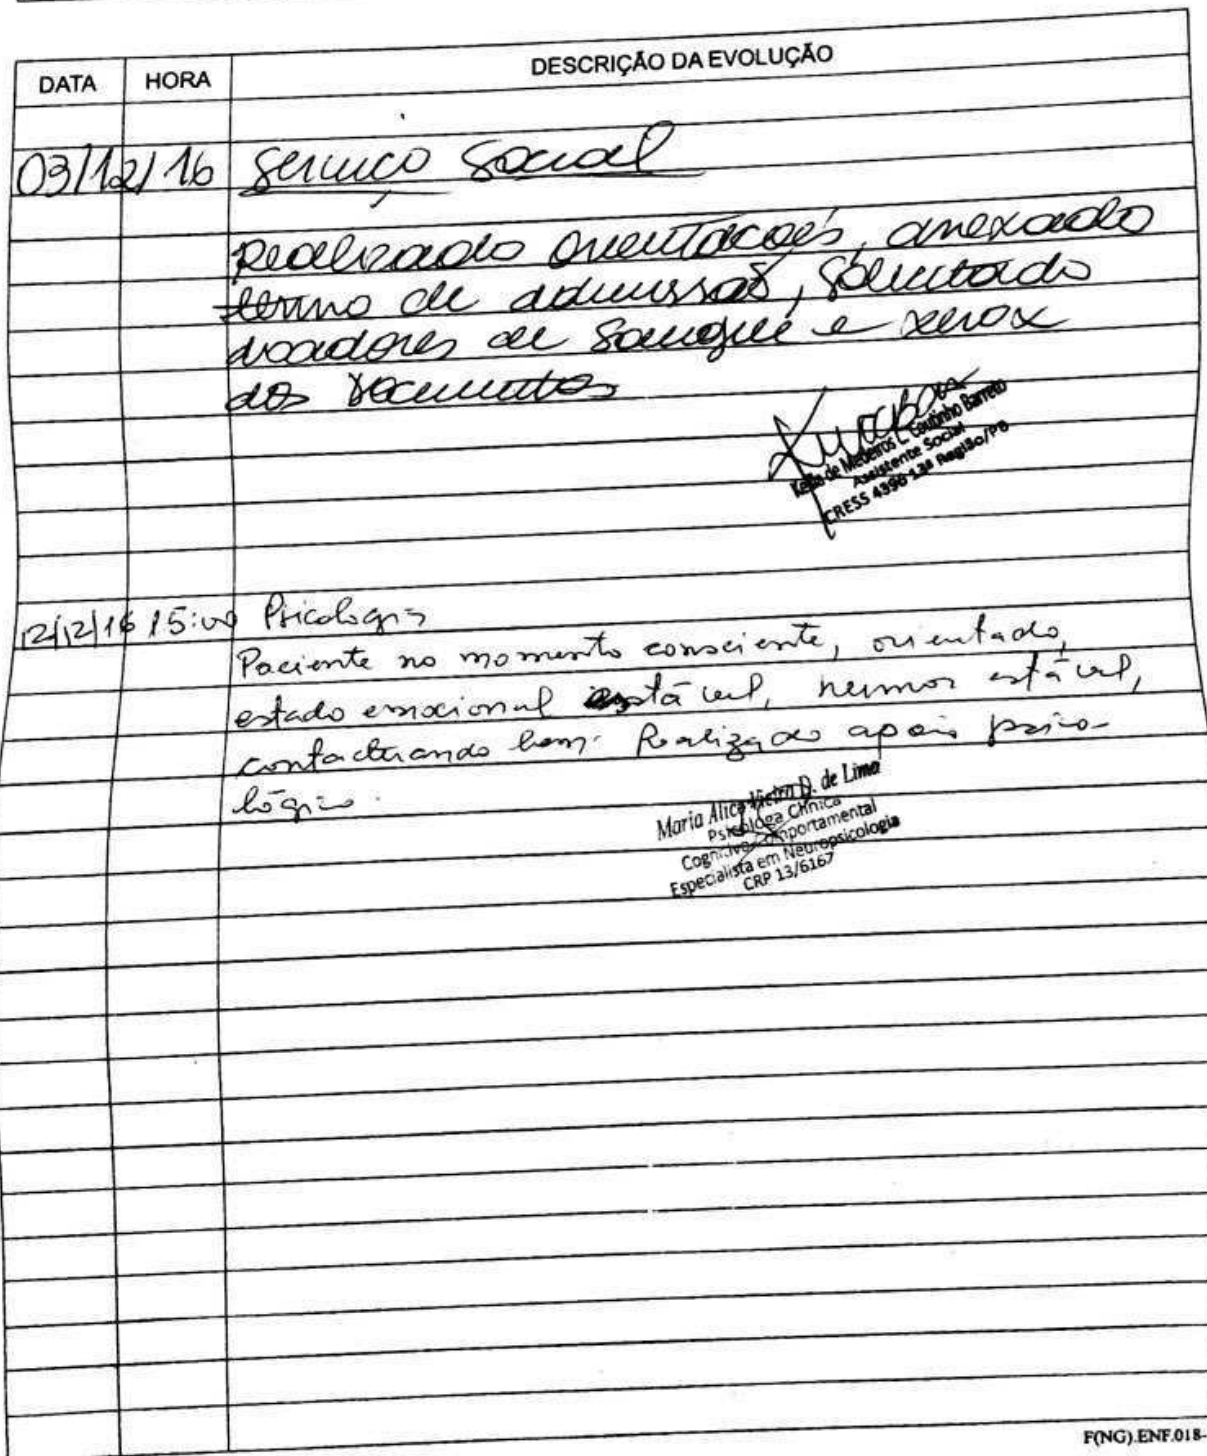 DATA HORA DESCRIÇÃO DA EVOLUÇÃO
03/12/16 Serviço Social
Realizado orientações, anexado
termo de admissão, solicitado
doadores de sangue e xerox
dos documentos
Keila de Medeiros L. Coutinho Barreto
Assistente Social
CRESS 4396 13ª Região/PB
12/12/16 15:00 Psicologia
Paciente no momento consciente, orientado,
estado emocional estável, humor estável,
contactuando bem. Realizado apoio psico-
lógico.
Maria Alice Vieira D. de Lima
Psicóloga Clínica
Cognitivo Comportamental
Especialista em Neuropsicologia
CRP 13/6167
F(NG).ENF.018-